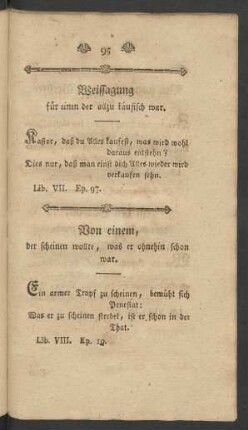 95
Weissagung
für einen der allzu käufisch war.
Kastor, daß du Alles kaufest, was wird wohl
daraus entstehn?
Dies nur, daß man einst dich Alles wieder wird
verkaufen sehn.
Lib. VII. Ep. 97.
Von einem,
der scheinen wollte, was er ohnehin schon
war.
Ein armer Tropf zu scheinen, bemüht sich
Penestat:
Was er zu scheinen strebet, ist er schon in der
That.
Lib. VIII. Ep. 19.